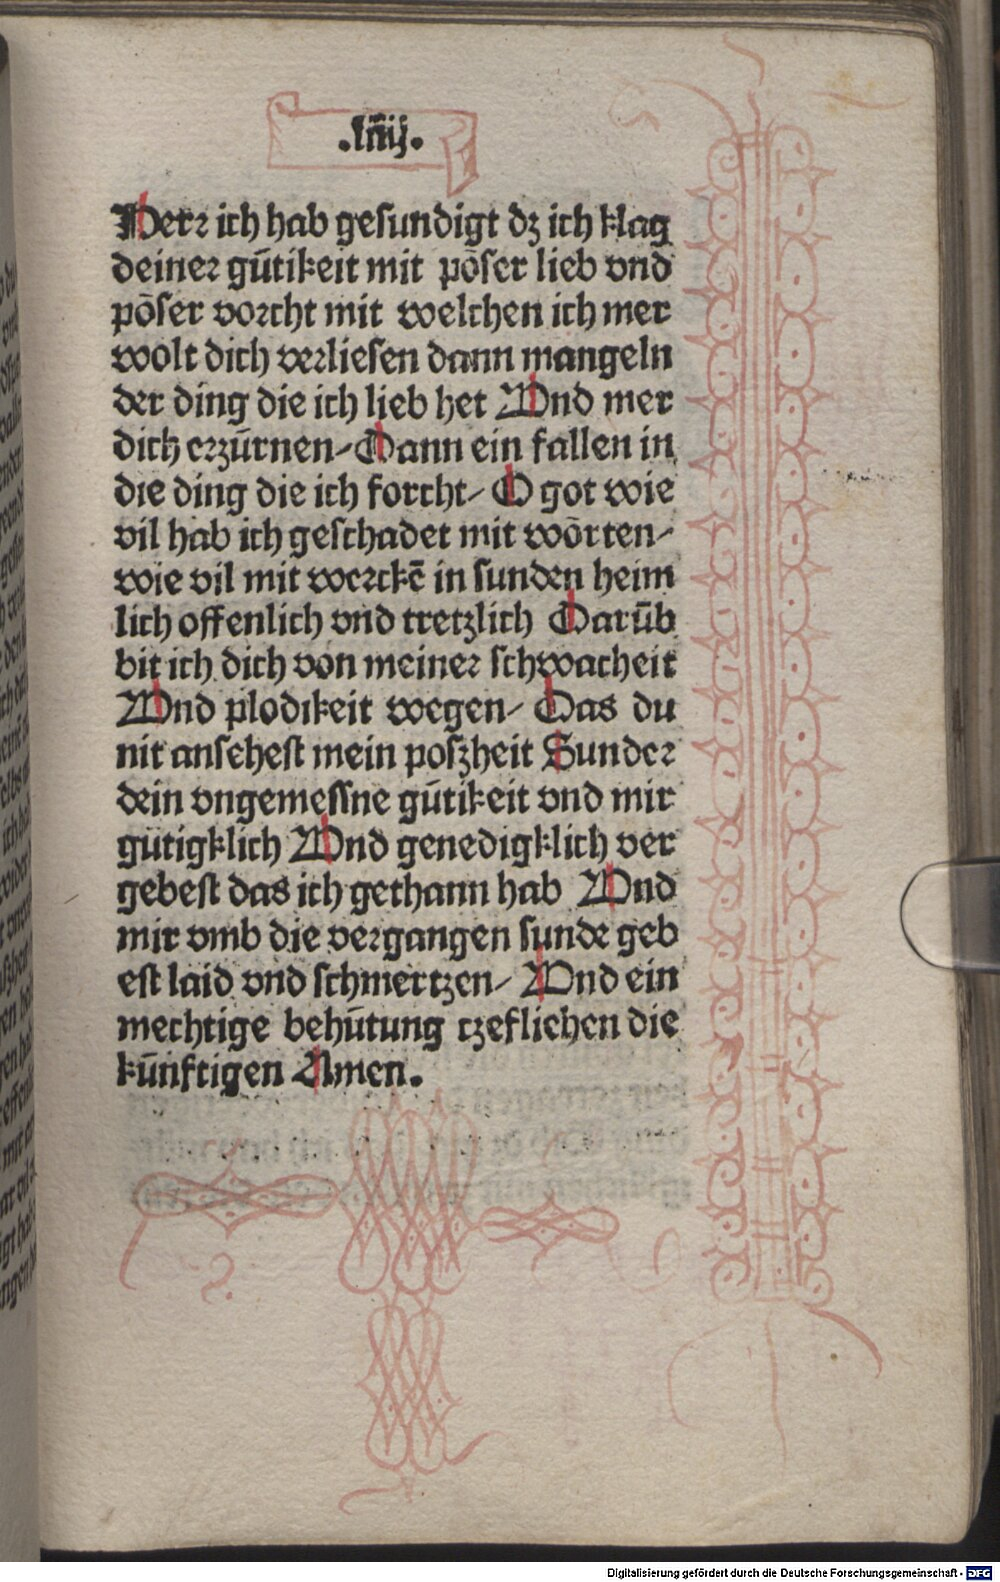 .lnıij.
Herr ich hab gesundigt dz ich klag
deiner gūtikeit mit pōser lieb vnd
pōser vorcht mit welchen ich mer
wolt dich verliesen dann mangeln
der ding die ich lieb het Vnd mer
dich erzūrnen/ Dann ein fallen in
die ding die ich forcht/ O got wie
vil hab ich geschadet mit wōrten/
wie vil mit werckē in sunden heim
lich offenlich vnd tretzlich Darūb
bit ich dich von meiner schwacheit
Vnd plodikeit wegen/ Das du
nit ansehest mein poszheit Sunder
dein vngemessne gūtikeit vnd mir
gutigklich Vnd genedigklich ver
gebest das ich gethann hab Vnd
mir vmb die vergangen sunde geb
est laid vnd schmertzen/ Vnd ein
mechtige behūtung czeflichen die
kūnftigen Amen.
Digitalisierung gefördert durch die Deutsche Forschungsgemeinschaft - DFG